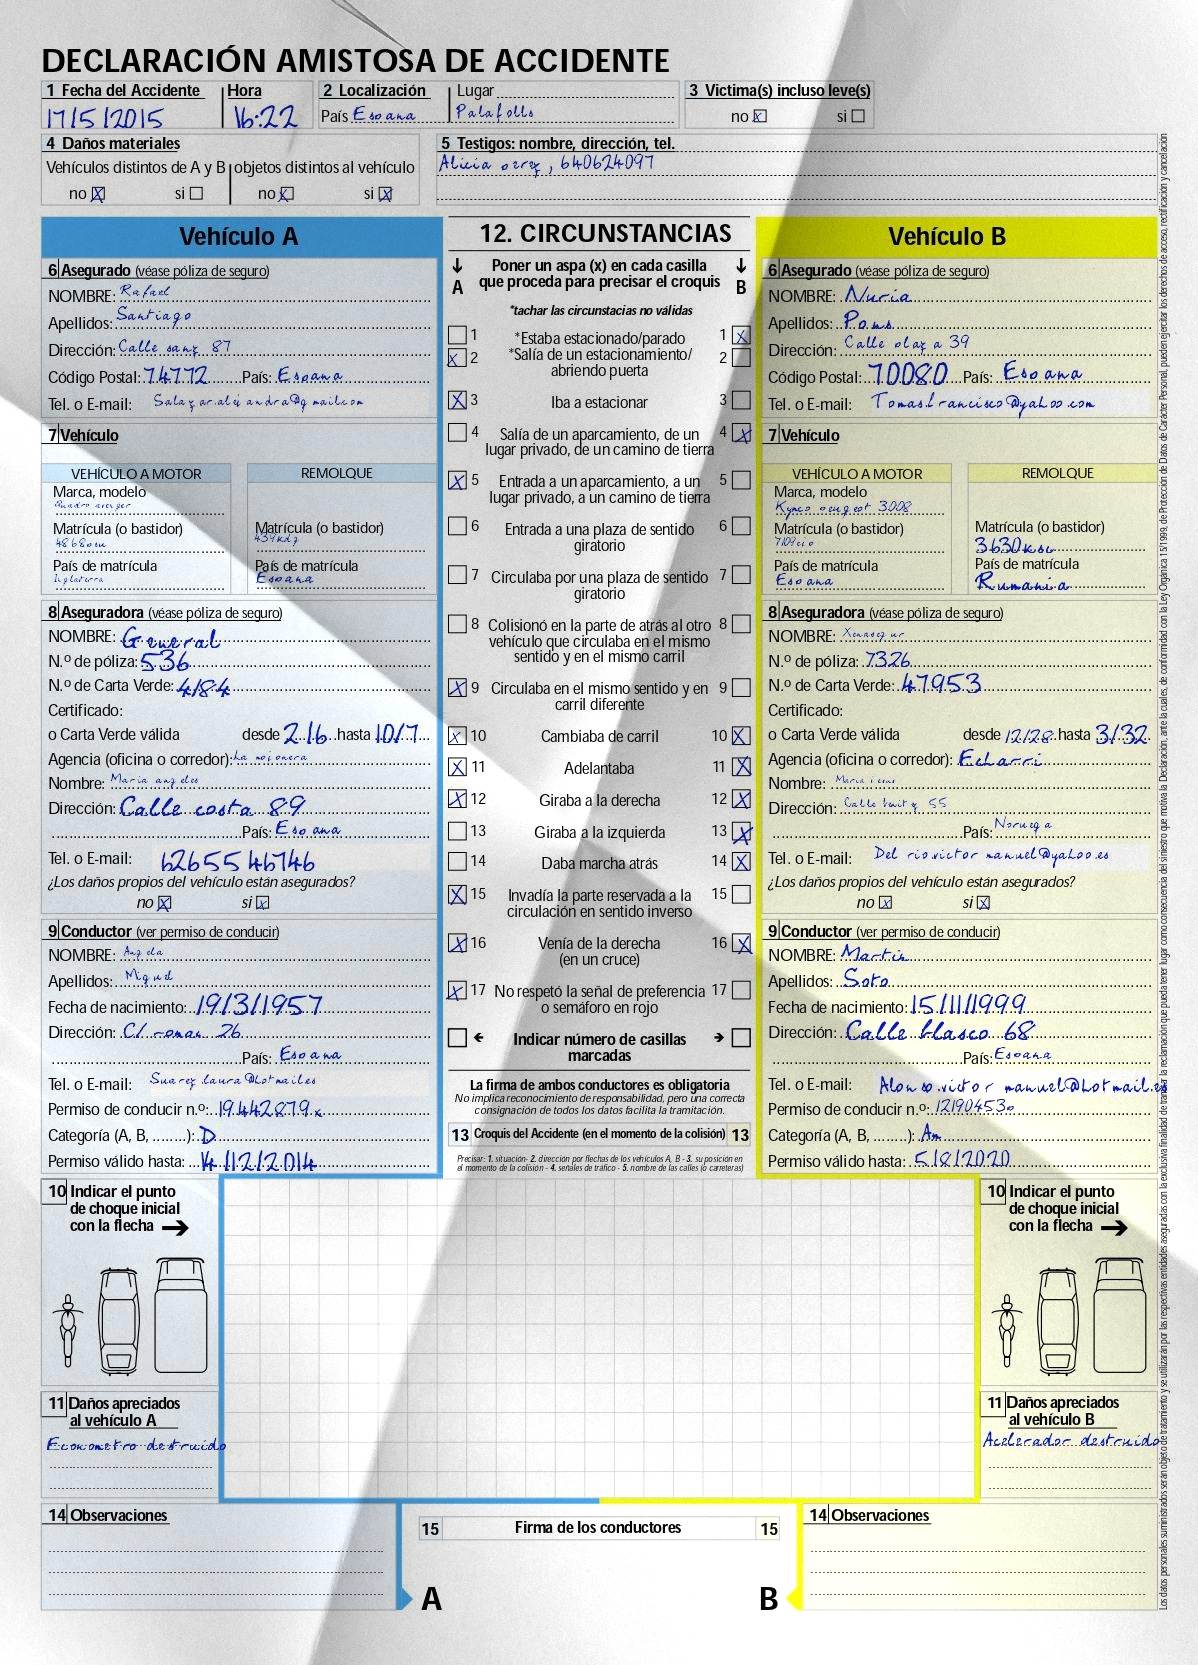 DECLARACIÓN AMISTOSA DE ACCIDENTE
1 Fecha del Accidente Hora
17/5/2015 16:22
2 Localización Lugar
País Espana Palafolls
3 Victima(s) incluso leve(s)
no x si
4 Daños materiales
Vehículos distintos de A y B objetos distintos al vehículo
no x si no x si x
5 Testigos: nombre, dirección, tel.
Alicia perez, 640624097
Vehículo A
6 Asegurado (véase póliza de seguro)
NOMBRE: Rafael
Apellidos: Santiago
Dirección: Calle sanz 87
Código Postal: 74772 País: Espana
Tel. o E-mail: Salazar.alejandra@gmail.com
7 Vehículo
VEHÍCULO A MOTOR REMOLQUE
Marca, modelo
Matrícula (o bastidor) Matrícula (o bastidor)
País de matrícula País de matrícula
Inglaterra Espana
8 Aseguradora (véase póliza de seguro)
NOMBRE: General
N.º de póliza: 536
N.º de Carta Verde: 4184
Certificado:
o Carta Verde válida desde 2/6 hasta 10/7
Agencia (oficina o corredor): La mojonera
Nombre: Maria angeles
Dirección: Calle costa 89
País: Espana
Tel. o E-mail: 626554 6746
¿Los daños propios del vehículo están asegurados?
no x si x
9 Conductor (ver permiso de conducir)
NOMBRE: Angela
Apellidos: Miguel
Fecha de nacimiento: 19/3/1957
Dirección: C/ roman 26
País: Espana
Tel. o E-mail: Suarez.laura@hotmail.es
Permiso de conducir n.º: 19442879x
Categoría (A, B, ........): D
Permiso válido hasta: 14/12/2014
10 Indicar el punto
de choque inicial
con la flecha
11 Daños apreciados
al vehículo A
Econometro destruido
14 Observaciones
12. CIRCUNSTANCIAS
A Poner un aspa (x) en cada casilla B
que proceda para precisar el croquis
*tachar las circunstacias no válidas
1 *Estaba estacionado/parado 1 x
x 2 *Salía de un estacionamiento/ 2
abriendo puerta
x 3 Iba a estacionar 3
4 Salía de un aparcamiento, de un 4 x
lugar privado, de un camino de tierra
x 5 Entrada a un aparcamiento, a un 5
lugar privado, a un camino de tierra
6 Entrada a una plaza de sentido 6
giratorio
7 Circulaba por una plaza de sentido 7
giratorio
8 Colisionó en la parte de atrás al otro 8
vehículo que circulaba en el mismo
sentido y en el mismo carril
x 9 Circulaba en el mismo sentido y en 9
carril diferente
x 10 Cambiaba de carril 10 x
x 11 Adelantaba 11 x
x 12 Giraba a la derecha 12 x
13 Giraba a la izquierda 13 x
14 Daba marcha atrás 14 x
x 15 Invadía la parte reservada a la 15
circulación en sentido inverso
x 16 Venía de la derecha 16 x
(en un cruce)
x 17 No respetó la señal de preferencia 17
o semáforo en rojo
Indicar número de casillas
marcadas
La firma de ambos conductores es obligatoria
No implica reconocimiento de responsabilidad, pero una correcta
consignación de todos los datos facilita la tramitación.
13 Croquis del Accidente (en el momento de la colisión) 13
Precisar: 1. situación- 2. dirección por flechas de los vehículos A, B - 3. su posición en
el momento de la colisión - 4. señales de tráfico - 5. nombre de las calles (o carreteras)
15 Firma de los conductores 15
A B
Vehículo B
6 Asegurado (véase póliza de seguro)
NOMBRE: Nuria
Apellidos: Pons
Dirección: Calle plaza 39
Código Postal: 70080 País: Espana
Tel. o E-mail: Tomas.francisco@yahoo.com
7 Vehículo
VEHÍCULO A MOTOR REMOLQUE
Marca, modelo
Kymco peugeot 3008
Matrícula (o bastidor) Matrícula (o bastidor)
3630ksc
País de matrícula País de matrícula
Espana Rumania
8 Aseguradora (véase póliza de seguro)
NOMBRE: Xenasegur
N.º de póliza: 7326
N.º de Carta Verde: 47953
Certificado:
o Carta Verde válida desde 12/28 hasta 3/32
Agencia (oficina o corredor): Echarri
Nombre: Maria jesus
Dirección: Calle benitez 55
País: Noruega
Tel. o E-mail: Del rio.victor manuel@yahoo.es
¿Los daños propios del vehículo están asegurados?
no x si x
9 Conductor (ver permiso de conducir)
NOMBRE: Martin
Apellidos: Soto
Fecha de nacimiento: 15/11/1999
Dirección: Calle blasco 68
País: Espana
Tel. o E-mail: Alonso.victor manuel@hotmail.es
Permiso de conducir n.º: 12190453p
Categoría (A, B, ........): Am
Permiso válido hasta: 5/8/2020
10 Indicar el punto
de choque inicial
con la flecha
11 Daños apreciados
al vehículo B
Acelerador destruido
14 Observaciones
Los datos personales suministrados serán objeto de tratamiento y se utilizarán por las respectivas entidades aseguradas con la exclusiva finalidad de tramitar la reclamación que pueda tener lugar como consecuencia del siniestro que motiva la Declaración, ante la cuales, de conformidad con la Ley Orgánica 15/1999, de Protección de Datos de Carácter Personal, pueden ejercitar los derechos de acceso, rectificación y cancelación